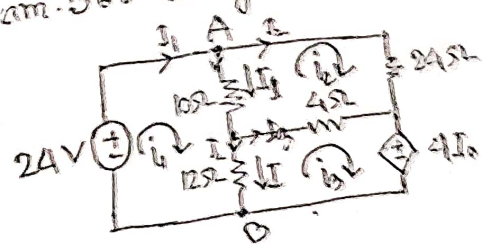 I₁ A I
24Ω
10Ω I₁ i₂
4Ω
24V i₁ I
12Ω I i₃ 4I₀
B